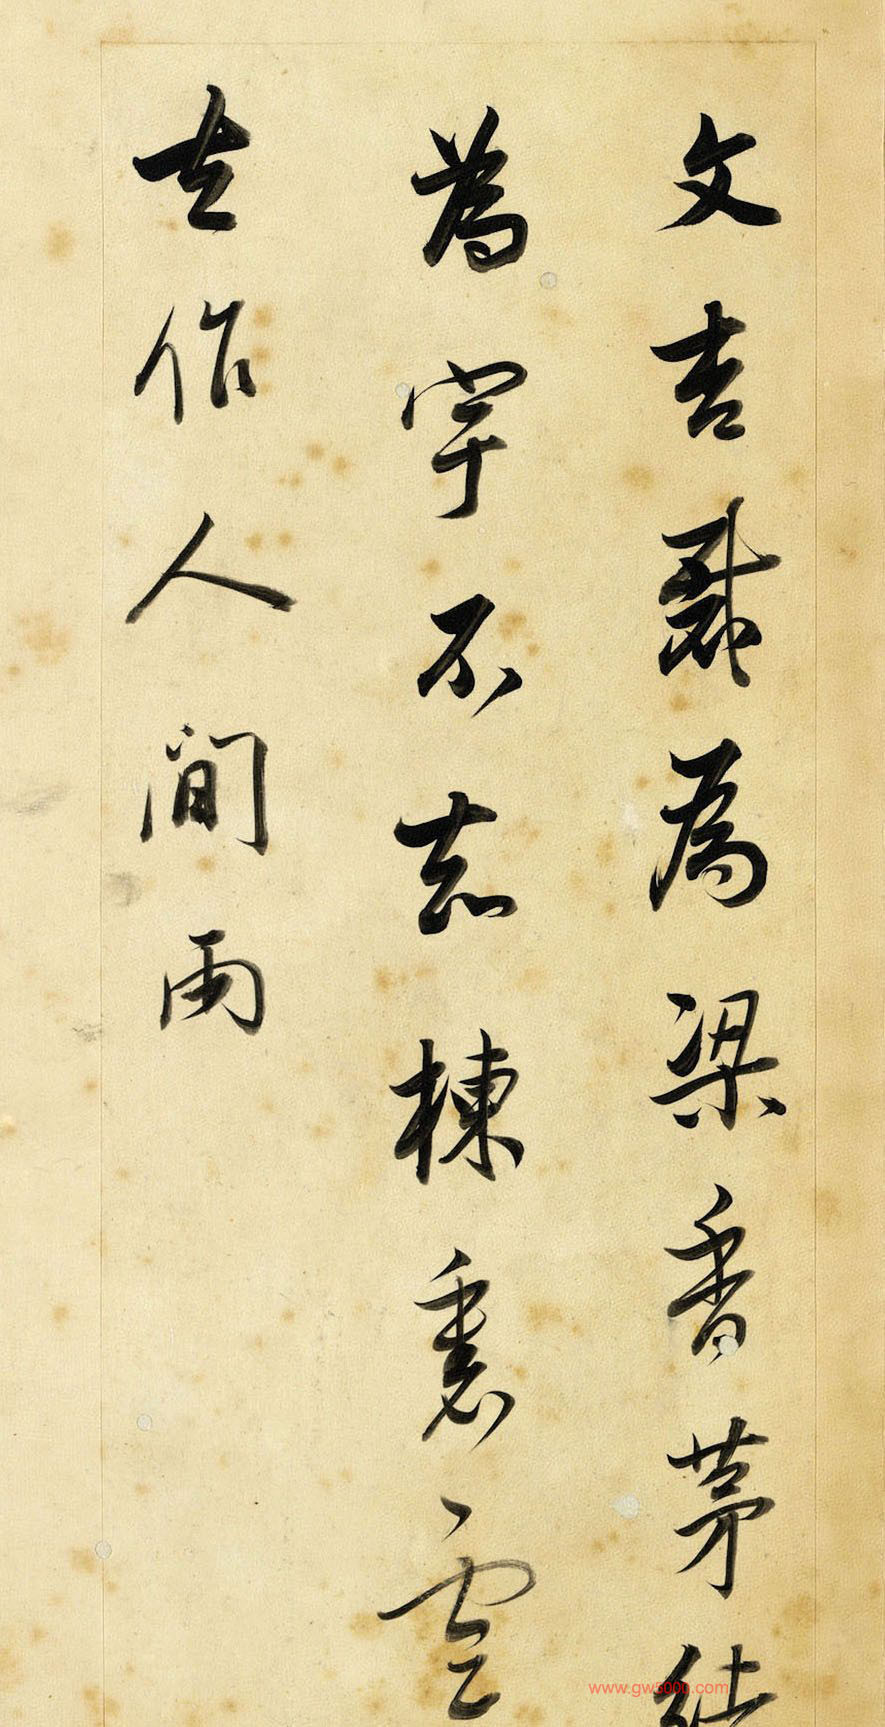 文杏裁為梁香茅結
為宇不知棟裏雲
去作人間雨
www.gw5000.com